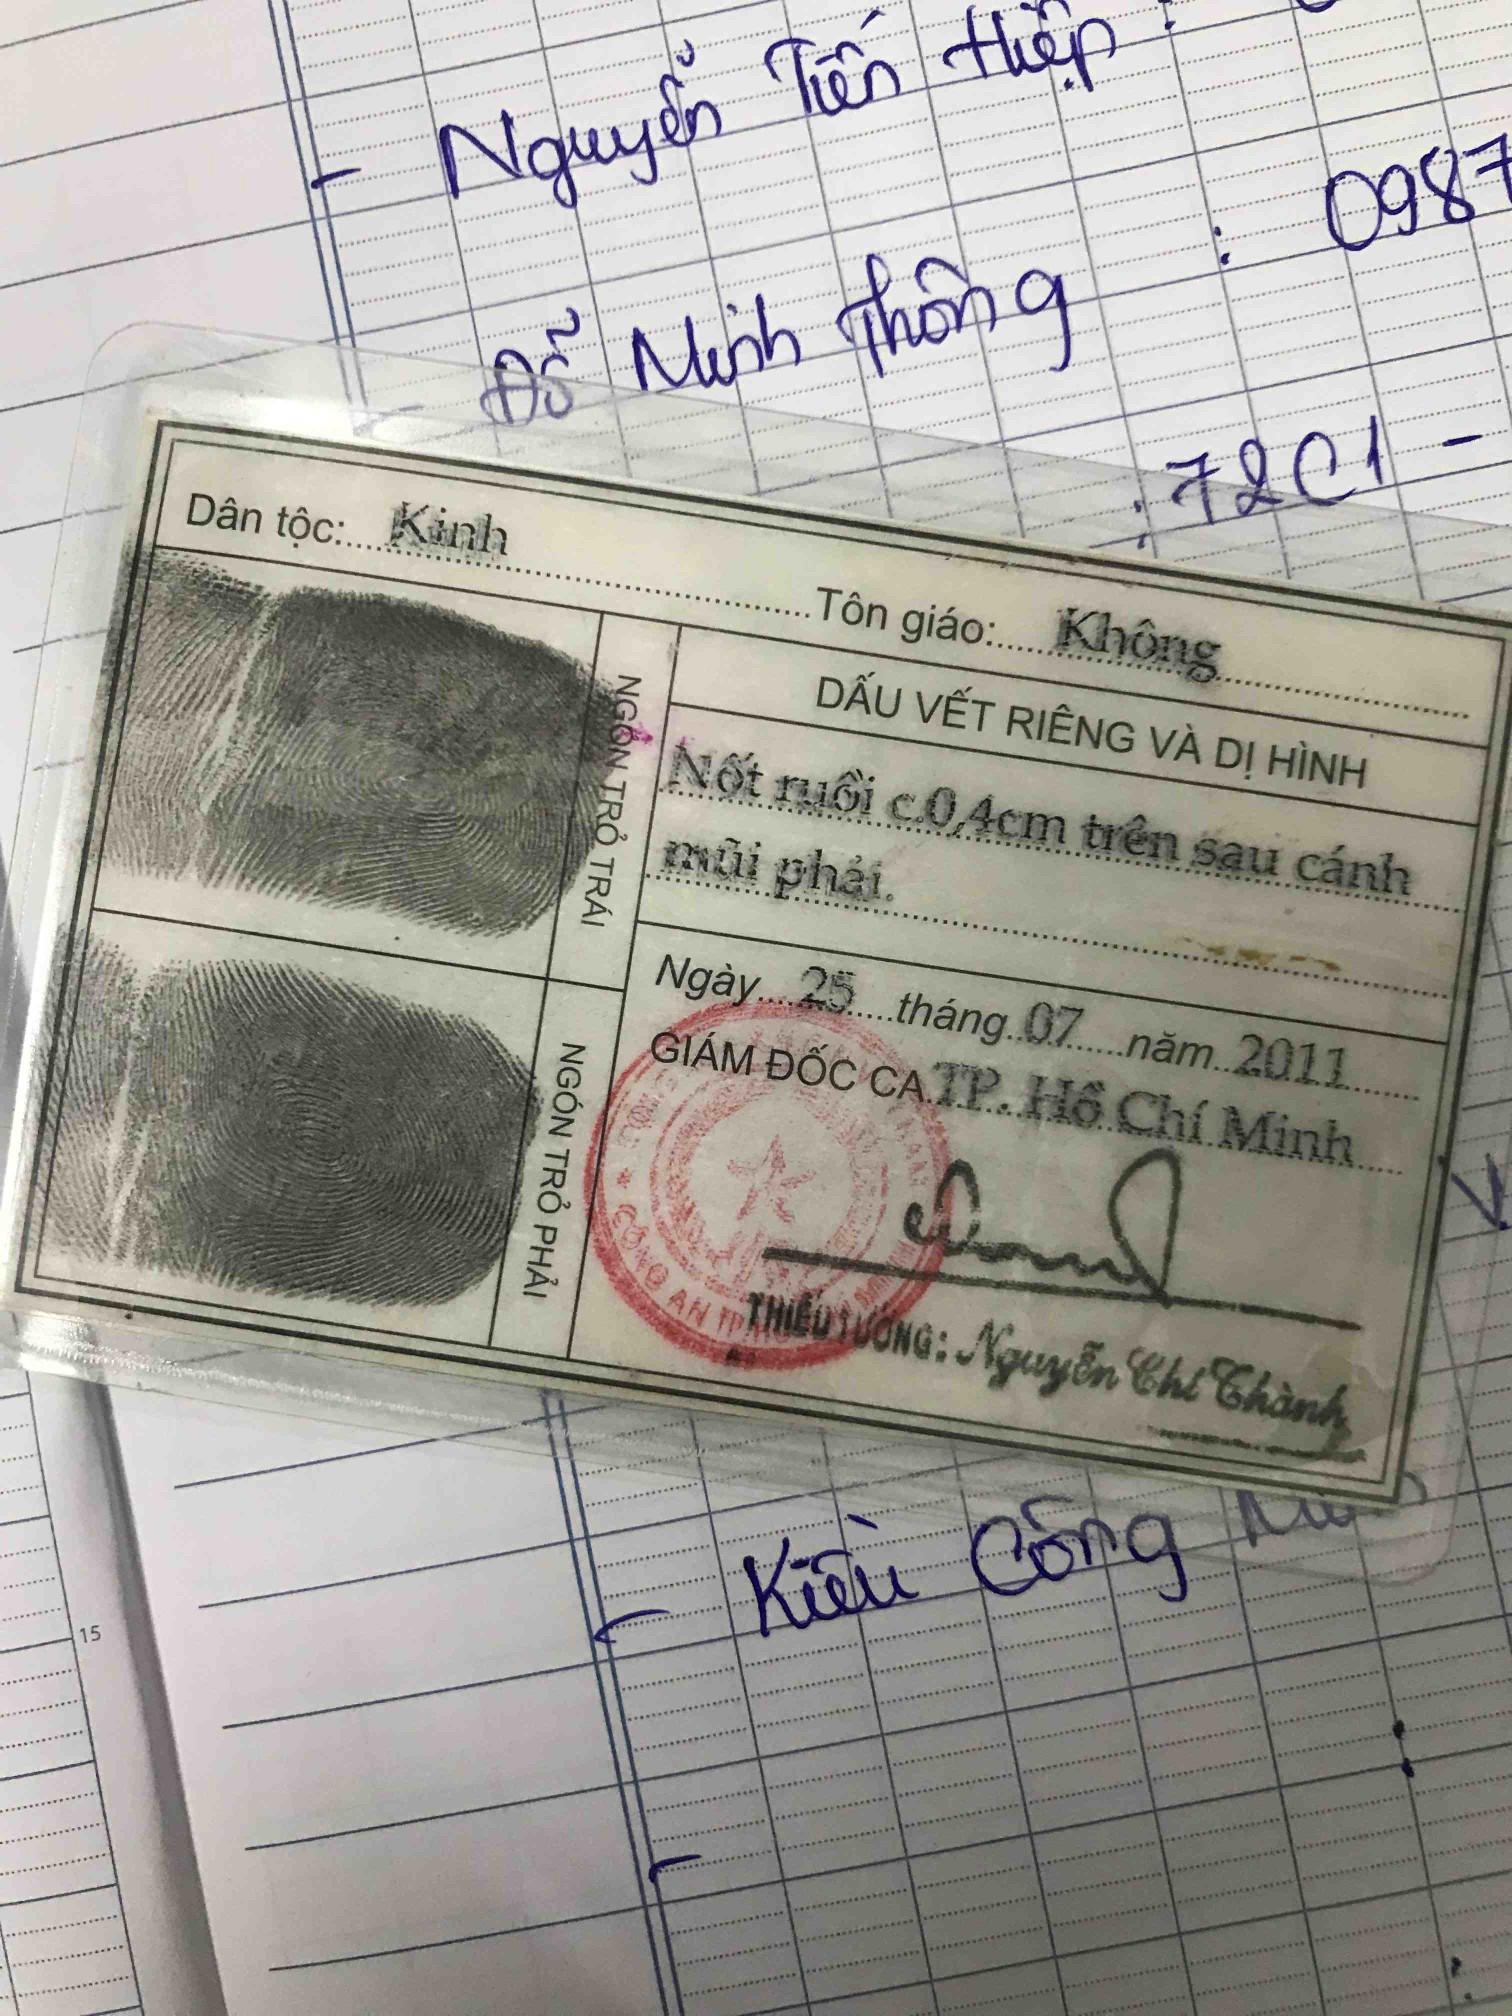 - Nguyễn Tiến Hiệp :
: 0987
- Đỗ Minh Thông
: 72C1 -
Dân tộc: Kinh Tôn giáo: Không
NGÓN TRỎ TRÁI
DẤU VẾT RIÊNG VÀ DỊ HÌNH
Nốt ruồi c.0,4cm trên sau cánh
mũi phải.
NGÓN TRỎ PHẢI
Ngày 25 tháng 07 năm 2011
GIÁM ĐỐC CA TP. Hồ Chí Minh
CÔNG AN TP
THIẾU TƯỚNG: Nguyễn Chí Thành
- Kiều Công
15